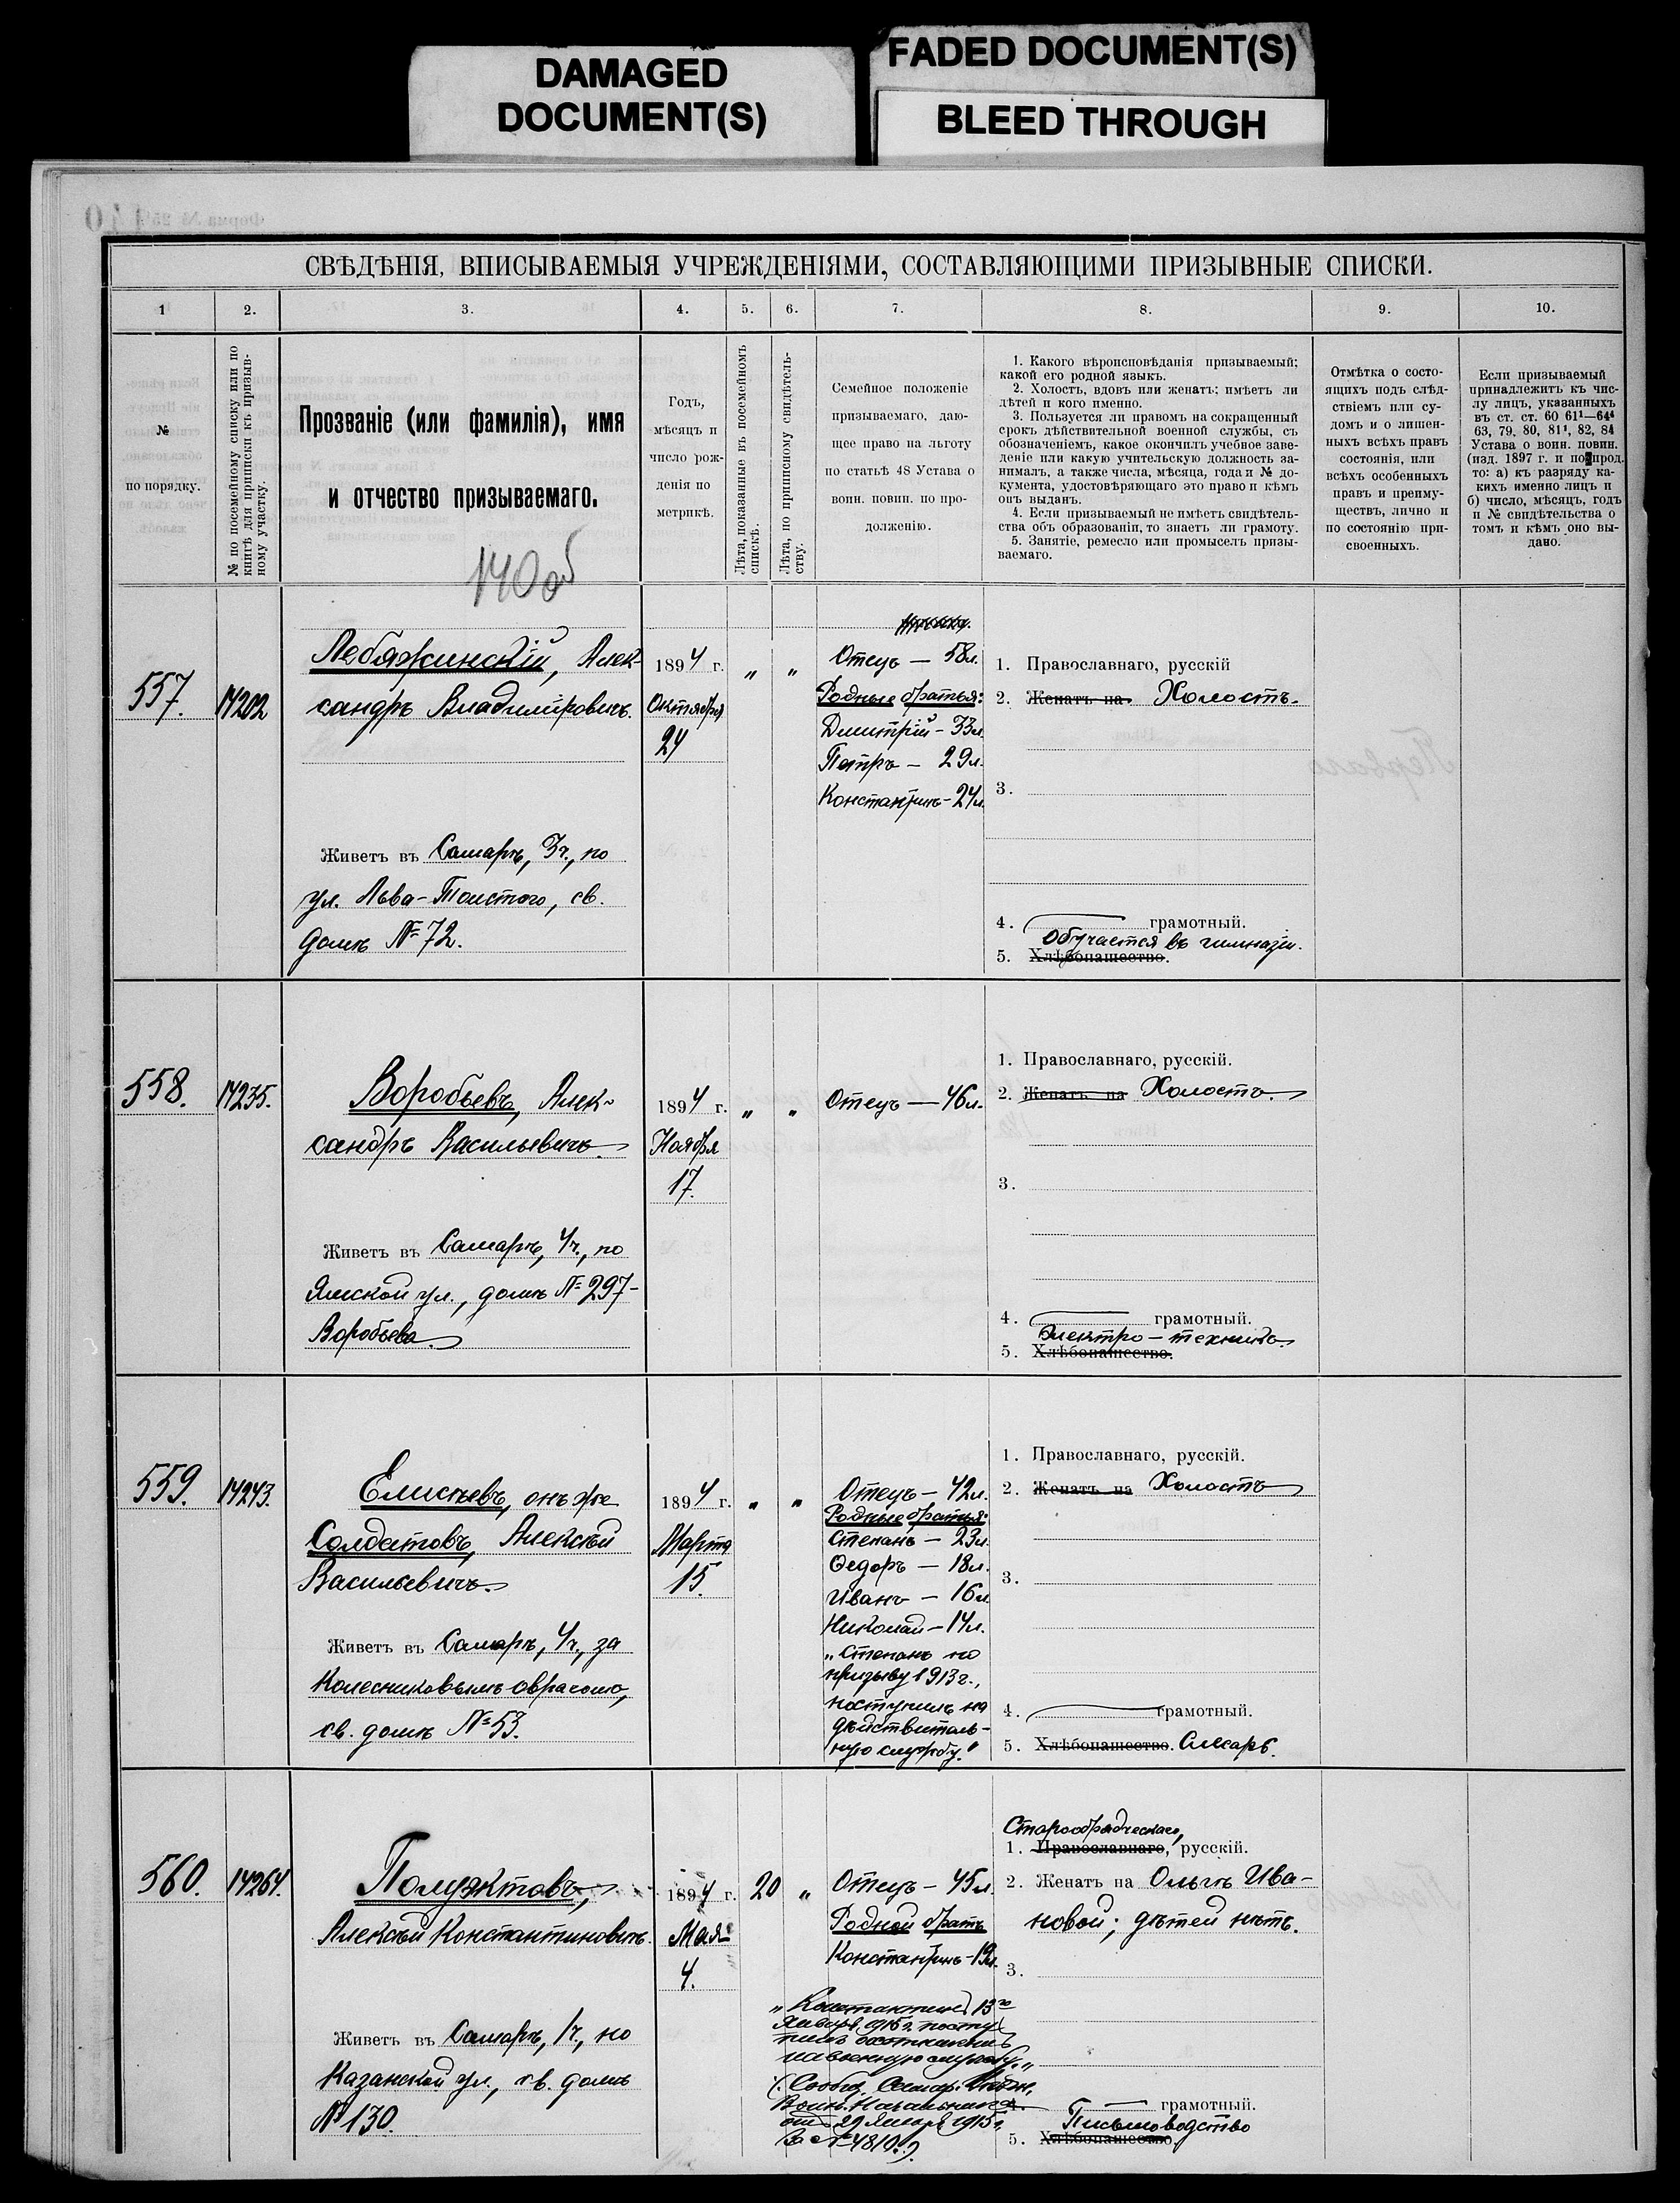 DAMAGED
DOCUMENT(S)
FADED DOCUMENT(S)
BLEED THROUGH
СВѢДѢНІЯ, ВПИСЫВАЕМЫЯ УЧРЕЖДЕНІЯМИ, СОСТАВЛЯЮЩИМИ ПРИЗЫВНЫЕ СПИСКИ.
1 2. 3. 4. 5. 6. 7. 8. 9. 10.
№
по порядку.
№ по посемейному списку или по
книгѣ для приписки къ призыв-
ному участку.
Прозваніе (или фамилія), имя
и отчество призываемаго.
140 об
Годъ,
мѣсяцъ и
число рож-
денія по
метрикѣ.
Лѣта, показанныя въ посемейномъ
спискѣ.
Лѣта, по приписному свидѣтель-
ству.
Семейное положеніе
призываемаго, даю-
щее право на льготу
по статьѣ 48 Устава о
воин. повин. по про-
долженію.
1. Какого вѣроисповѣданія призываемый;
какой его родной языкъ.
2. Холостъ, вдовъ или женатъ; имѣетъ ли
дѣтей и кого именно.
3. Пользуется ли правомъ на сокращенный
срокъ дѣйствительной военной службы, съ
обозначеніемъ, какое окончилъ учебное заве-
деніе или какую учительскую должность за-
нималъ, а также числа, мѣсяца, года и № до-
кумента, удостовѣряющаго это право и кѣмъ
онъ выданъ.
4. Если призываемый не имѣетъ свидѣтель-
ства объ образованіи, то знаетъ ли грамоту.
5. Занятіе, ремесло или промыселъ призы-
ваемаго.
Отмѣтка о состо-
ящихъ подъ слѣд-
ствіемъ или су-
домъ и о лишен-
ныхъ всѣхъ правъ
состоянія, или
всѣхъ особенныхъ
правъ и преиму-
ществъ, лично и
по состоянію при-
своенныхъ.
Если призываемый
принадлежитъ къ чис-
лу лицъ, указанныхъ
въ ст. ст. 60 61¹—64⁴
63, 79, 80, 81¹, 82, 84
Устава о воин. повин.
(изд. 1897 г. и по прод.
то: а) къ разряду ка-
кихъ именно лицъ и
б) число, мѣсяцъ, годъ
и № свидѣтельства о
томъ и кѣмъ оно вы-
дано.
557.
14202
Лебяжинскій, Алек-
сандръ Владиміровичъ.
Живетъ въ Самарѣ, 3ч., по
ул. Льва-Толстого, св.
домъ № 72.
1894 г.
Октября
24
„ „
Отецъ — 58л.
Родные братья:
Дмитрій — 33л.
Петръ — 29л.
Константинъ — 24л.
1. Православнаго, русскій
2. Женатъ на Холостъ.
3.
4. грамотный.
Обучается въ гимназіи.
5. Хлѣбопашество.
558.
14235.
Воробьевъ, Алек-
сандръ Васильевичъ.
Живетъ въ Самарѣ, 4ч., по
Ямской ул., домъ № 297-
Воробьева.
1894 г.
Ноября
17.
„ „
Отецъ — 46л.
1. Православнаго, русскій.
2. Женатъ на Холостъ.
3.
4. грамотный.
Электро-техникъ.
5. Хлѣбопашество.
559.
14243.
Елисѣевъ, онъ же
Солдатовъ, Алексѣй
Васильевичъ.
Живетъ въ Самарѣ, 4ч., за
Колесниковымъ оврагомъ,
св. домъ № 53.
1894 г.
Марта
15.
„ „
Отецъ — 42л.
Родные братья:
Степанъ — 23л.
Ѳедоръ — 18л.
Иванъ — 16л.
Николай — 14л.
„Степанъ по
призыву 1913 г.,
поступилъ на
дѣйствитель-
ную службу."
1. Православнаго, русскій.
2. Женатъ на Холостъ
3.
4. грамотный.
5. Хлѣбопашество. Слесарь.
560.
14264.
Полуэктовъ,
Алексѣй Константиновичъ.
Живетъ въ Самарѣ, 1ч., по
Казанской ул., св. домъ
№ 130.
1894 г.
Мая
4.
20 „
Отецъ — 45л.
Родной братъ
Константинъ — 19л.
„Константинъ 13го
Января 1915 г. посту
пилъ охотникомъ
на военную службу."
(Сообщ. Самар. Уѣздн.
Воин. Начальника
отъ 29 Января 1915 г.
за № 4810.)
Старообрядческаго,
1. Православнаго, русскій.
2. Женатъ на Ольгѣ Ива-
новой; дѣтей нѣтъ.
3.
грамотный.
Письмоводство
5. Хлѣбопашество.